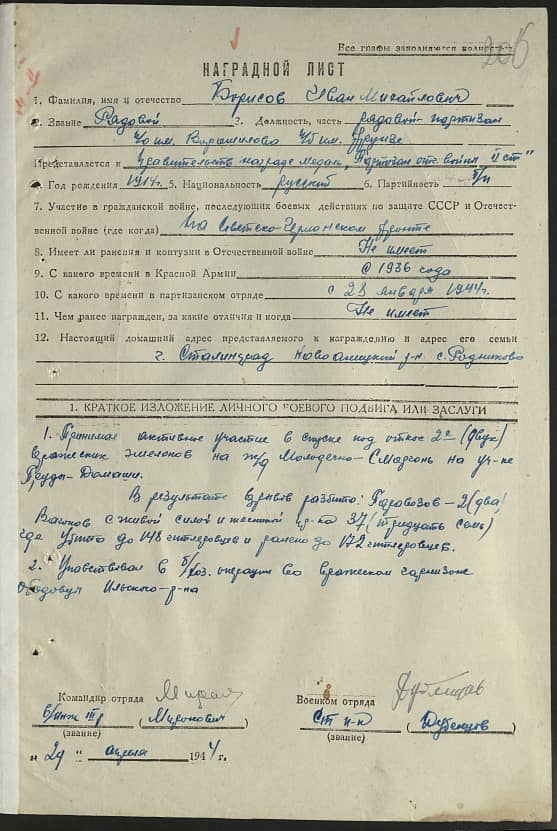 Все графы заполняются полностью
206
НАГРАДНОЙ ЛИСТ
1. Фамилия, имя и отчество Борисов Иван Михайлович
2. Звание Рядовой 3. Должность, часть рядовой-партизан
п/о им. Ворошилова п/б им. Фрунзе
Представляется к правительств. награде медаль "Партизан отеч. войны II ст"
4. Год рождения 1914г. 5. Национальность русский 6. Партийность б/п
7. Участие в гражданской войне, последующих боевых действиях по защите СССР и Отечест-
венной войне (где когда) На Советско-Германском фронте
8. Имеет ли ранения и контузии в Отечественной войне Не имеет
9. С какого времени в Красной Армии С 1936 года
10. С какого времени в партизанском отряде с 28 января 1944г.
11. Чем ранее награжден, за какие отличия и когда Не имеет
12. Настоящий домашний адрес представляемого к награждению и адрес его семьи
г. Сталинград р-н с. Родниково
1. КРАТКОЕ ИЗЛОЖЕНИЕ ЛИЧНОГО БОЕВОГО ПОДВИГА ИЛИ ЗАСЛУГИ
1. Принимал активное участие в спуске под откос 2х (двух)
вражеских эшелонов на ж/д Молодечно-Сморгонь на уч-ке
Пруды-Домаши.
В результате взрывов разбито: Паровозов - 2 (два)
Вагонов с живой силой и техникой пр-ка 37 (тридцать семь)
где убито до 148 гитлеровцев и ранено до 172 гитлеровцев.
2. Участвовал в б/хоз. операции во вражеском гарнизоне
Ободовцы Ильского р-на
Командир отряда
в/инж III р (Миронович)
(звание)
Военком отряда
Ст п-к (Дубенцов)
(звание)
"29" апреля 1944 г.